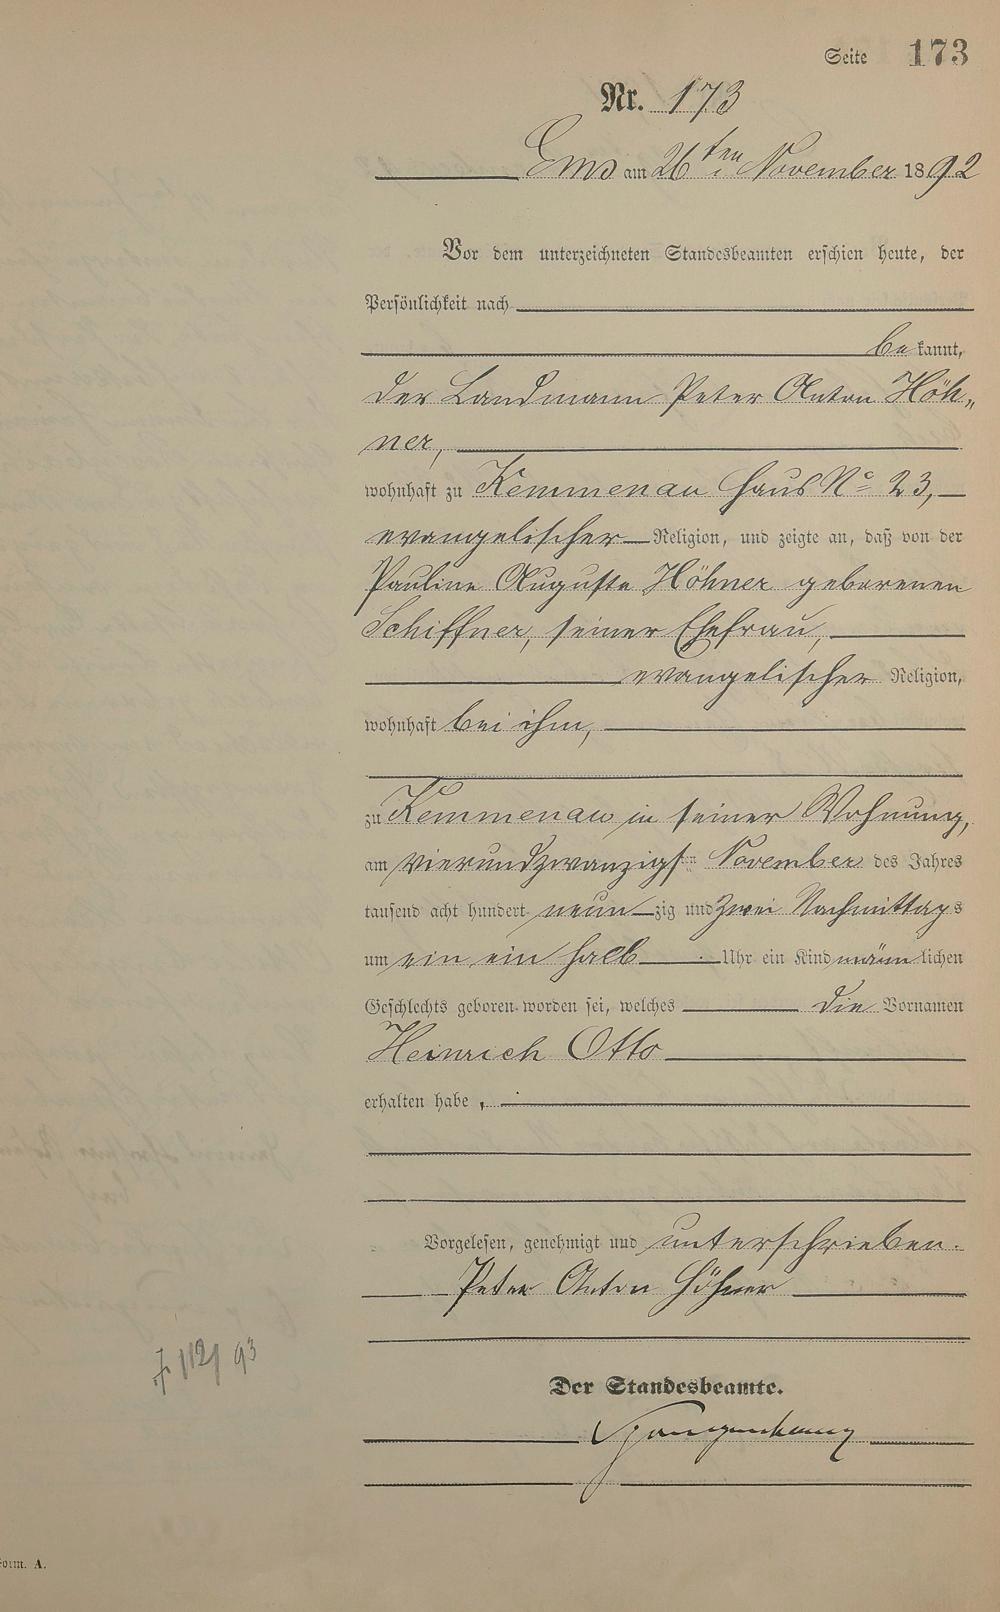 Seite 173
Nr. 173
Ems am 26ten November 1892
Vor dem unterzeichneten Standesbeamten erschien heute, der
Persönlichkeit nach
bekannt,
der Landmann Peter Anton Höh„
ner,
wohnhaft zu Kemmenau Haus No 23,
evangelischer Religion, und zeigte an, daß von der
Pauline Auguste Höhner geborenen
Schiffner, seiner Ehefrau,
evangelischer Religion,
wohnhaft bei ihm,
zu Kemmenau in seiner Wohnung,
am vierundzwanzigsten November des Jahres
tausend acht hundert neunzig und zwei Nachmittags
um ein ein halb Uhr ein Kind männlichen
Geschlechts geboren worden sei, welches die Vornamen
Heinrich Otto
erhalten habe.
Vorgelesen, genehmigt und unterschrieben.
Peter Anton Höhner
Der Standesbeamte.
Form. A.